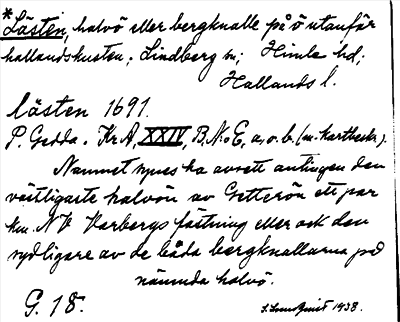 *Lästen, halvö eller bergknalle på ö utanför
hallandskusten. Lindberg sn; Himle hd;
Hallands l.
lästen 1691.
P. Gedda. Kr A, XXIV, B. N:o E, a. o. b. (u. kartbeckn.).
Namnet synes ha avsett antingen den
västligaste halvön av Getterön ett par
km NV Varbergs fästning eller ock den
sydligare av de båda bergknallarna på
nämnda halvö.
G. 18.
1938.